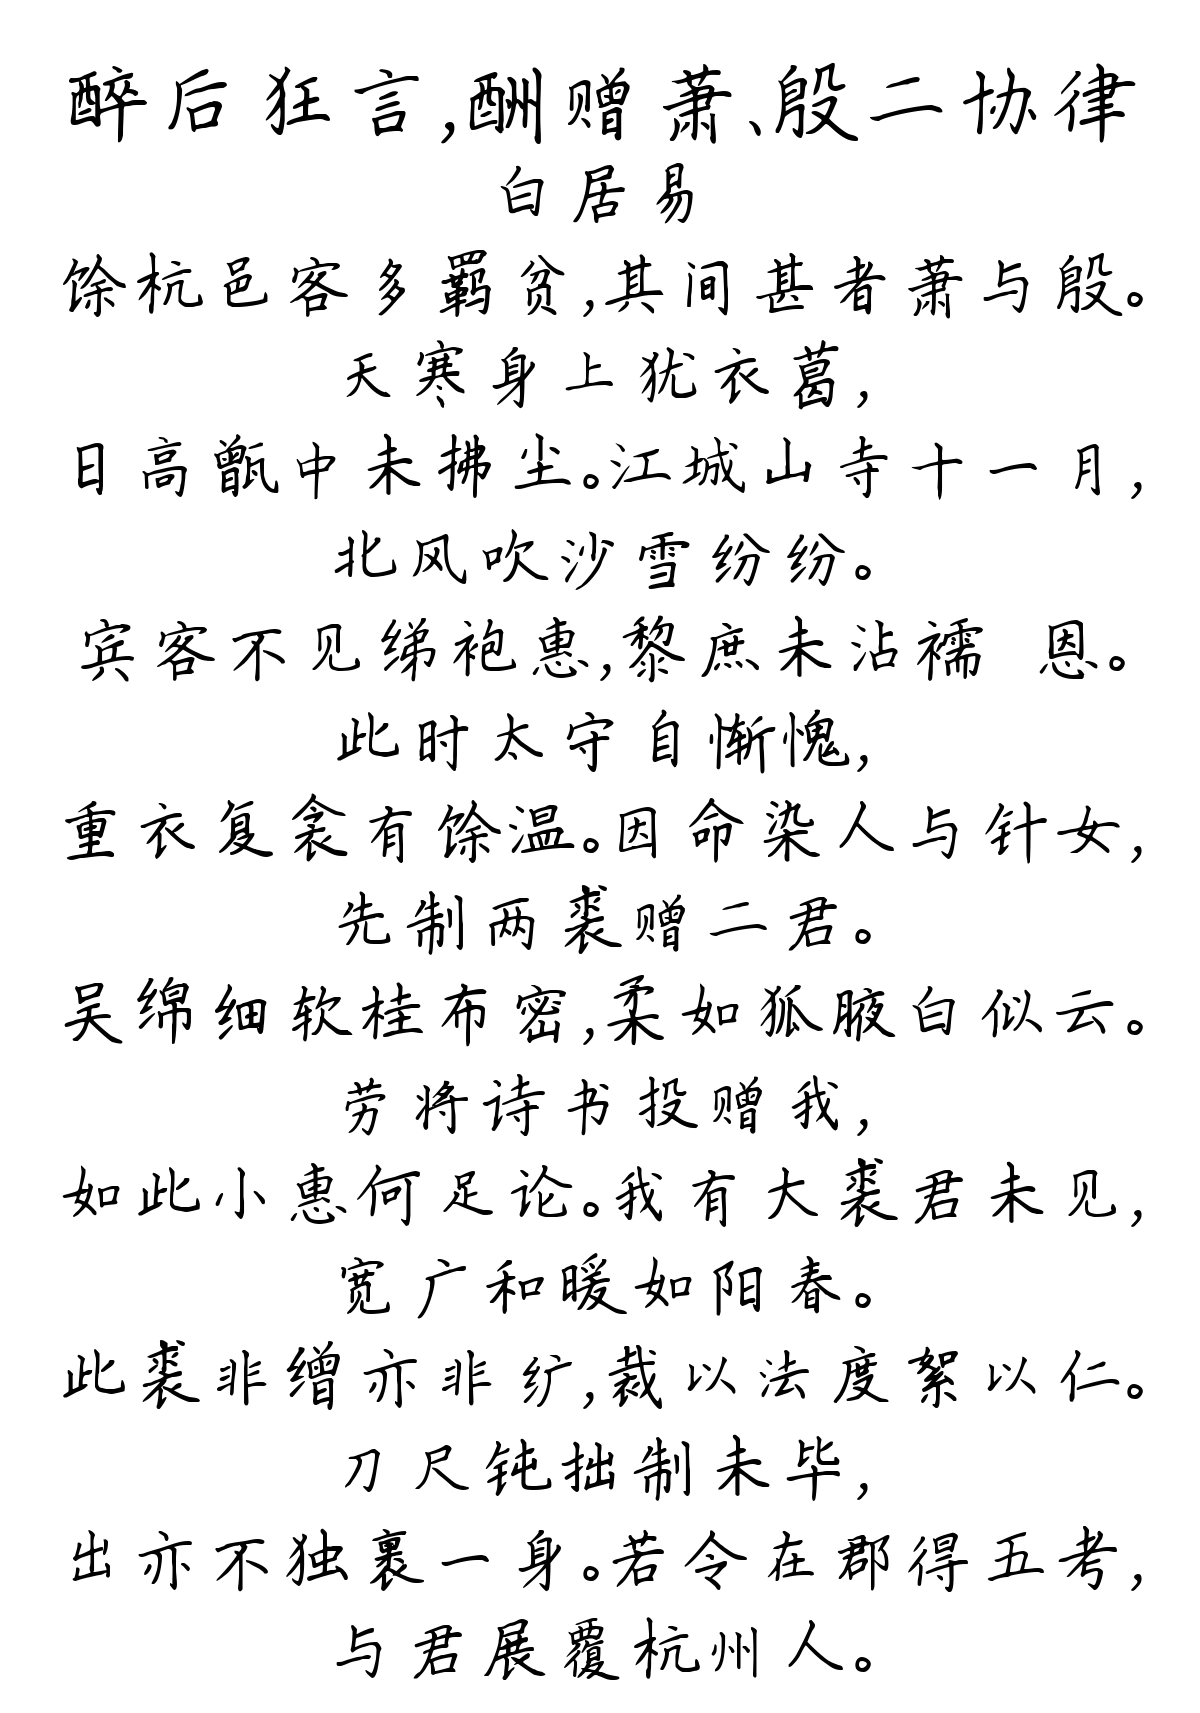 醉后狂言,酬赠萧、殷二协律
白居易
馀杭邑客多羁贫,其间甚者萧与殷。
天寒身上犹衣葛,
日高甑中未拂尘。江城山寺十一月,
北风吹沙雪纷纷。
宾客不见绨袍惠,黎庶未沾襦 恩。
此时太守自惭愧,
重衣复衾有馀温。因命染人与针女,
先制两裘赠二君。
吴绵细软桂布密,柔如狐腋白似云。
劳将诗书投赠我,
如此小惠何足论。我有大裘君未见,
宽广和暖如阳春。
此裘非缯亦非纩,裁以法度絮以仁。
刀尺钝拙制未毕,
出亦不独裹一身。若令在郡得五考,
与君展覆杭州人。